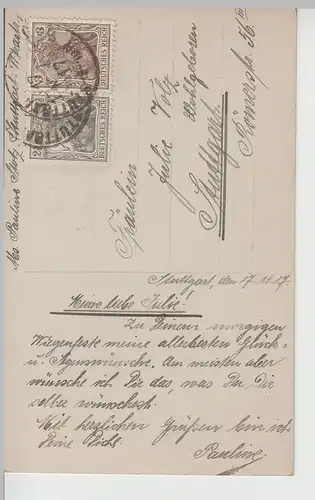 Fräulein
Julie Voz
Wohlgeboren
Stuttgart
Römerstr. 56
DEUTSCHES REICH
DEUTSCHES REICH
Stuttgart, den 17.11.17.
Meine liebe Julie!
Zu Deinem morgigen
Wiegenfeste meine allerbesten Glück-
u. Segenswünsche. Am meisten aber
wünsche ich Dir das, was Du Dir
selber wünschest.
Mit herzlichen Grüßen bin ich
Deine
Pauline.
Pauline Stuttgart